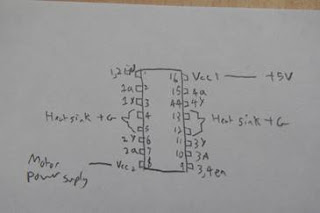 1,2 en 1 16 Vcc 1 +5V
1a 2 15 4a
1Y 3 44 4Y
Heat sink + G 4 13 Heat sink + G
5 12
2Y 6 11 3Y
2a 7 10 3A
Motor Power supply Vcc 2 8 9 3,4 en